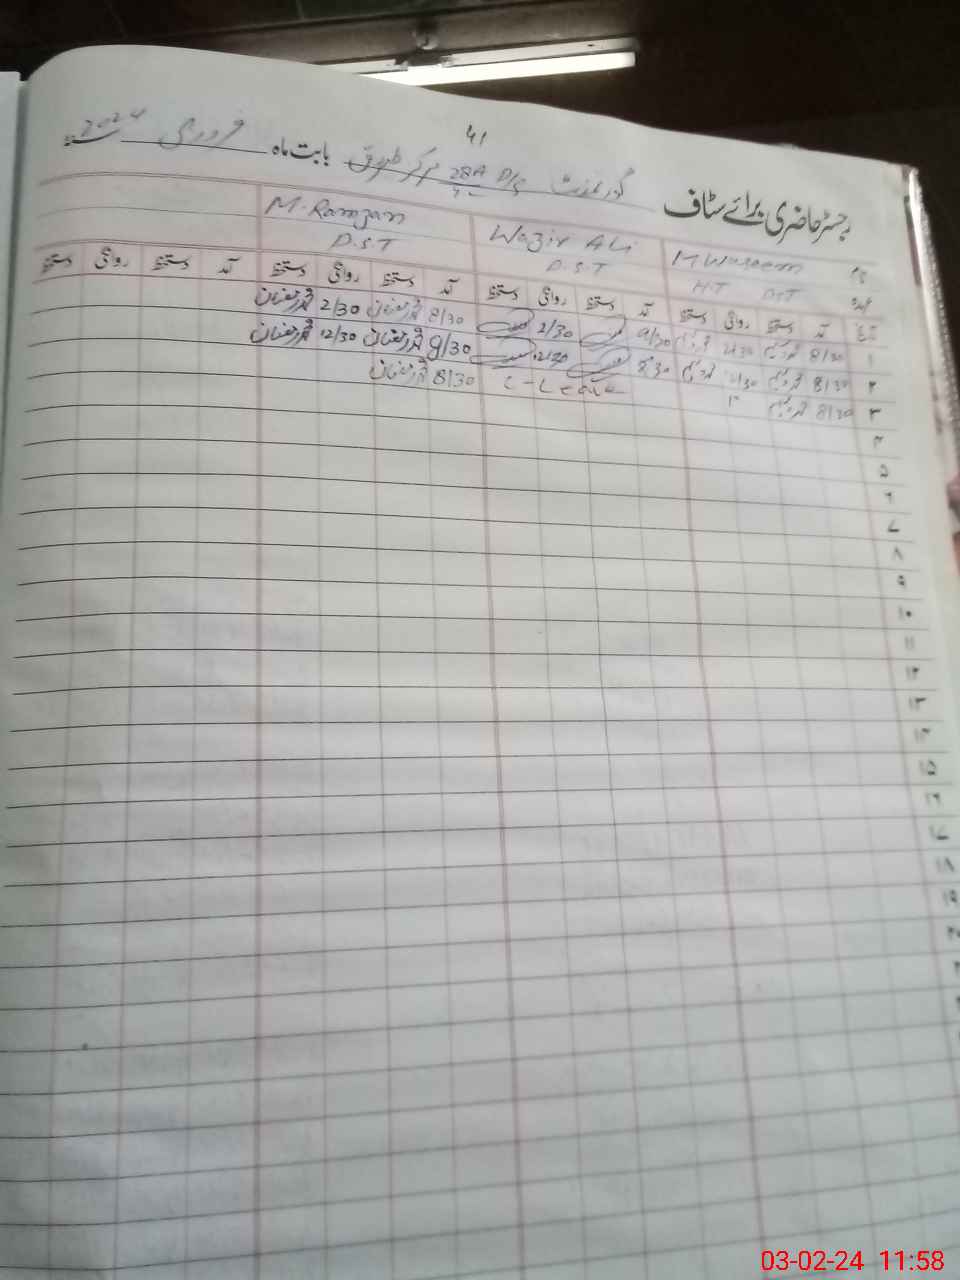 41
رجسٹر حاضری برائے سٹاف گورنمنٹ 28A D/S بابت ماہ فروری 2024ء
نام M Waseem Wazir Ali M. Ramzan
عہدہ H.T PST P.S.T P.S.T
تاریخ آمد دستخط روانگی دستخط آمد دستخط روانگی دستخط آمد دستخط روانگی دستخط آمد دستخط روانگی دستخط
۱ 8/30 محمد وسیم 2/30 محمد وسیم 8/30 2/30 8/30 محمد رمضان 2/30 محمد رمضان
۲ 8/30 محمد وسیم 12/30 محمد وسیم 8/30 12/30 8/30 محمد رمضان 12/30 محمد رمضان
۳ 8/30 محمد وسیم C-Leave 8/30 محمد رمضان
۴
۵
۶
۷
۸
۹
۱۰
۱۱
۱۲
۱۳
۱۴
۱۵
۱۶
۱۷
۱۸
۱۹
۲۰
03-02-24 11:58